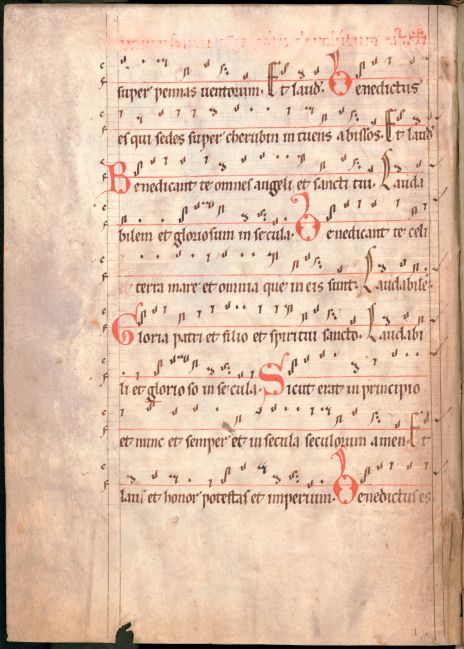 super pennas uentorum. Et laud. Benedictus
es qui sedes super cherubin intuens abissos. Et laud
Benedicant te omnes angeli et sancti tui. Lauda
bilem et gloriosum in secula. Benedicant te celi
terra mare et omnia que in eis sunt. Laudabile
Gloria patri et filio et spiritui sancto. Laudabi
li et glorioso in secula. Sicut erat in principio
et nunc et semper et in secula seculorum amen. Et
laus et honor potestas et imperium. Benedictus es